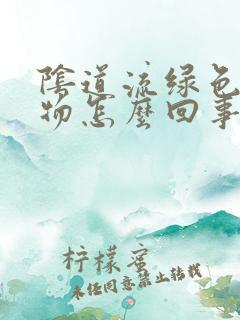 陰道流绿色
物怎麼回事
柠檬蜜
未经同意禁止转载